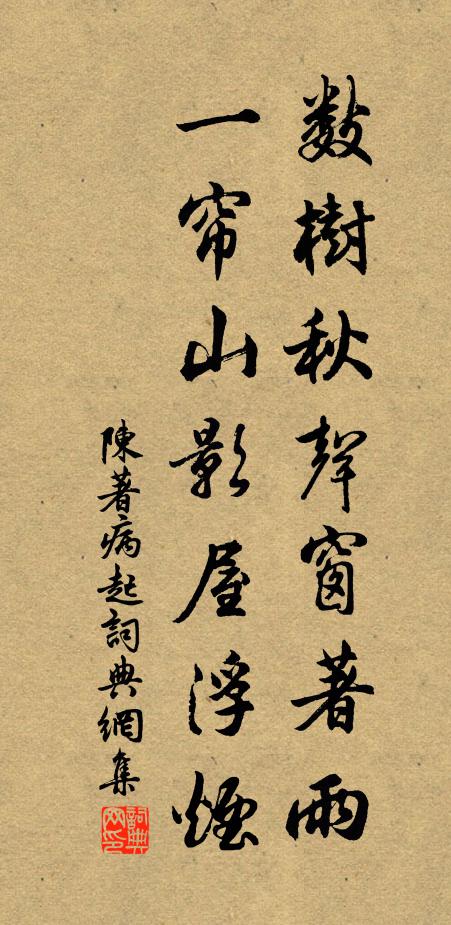 數樹秋聲窗著雨
一帘山影屋浮煙
陳著病起詞典網集
詞典網印